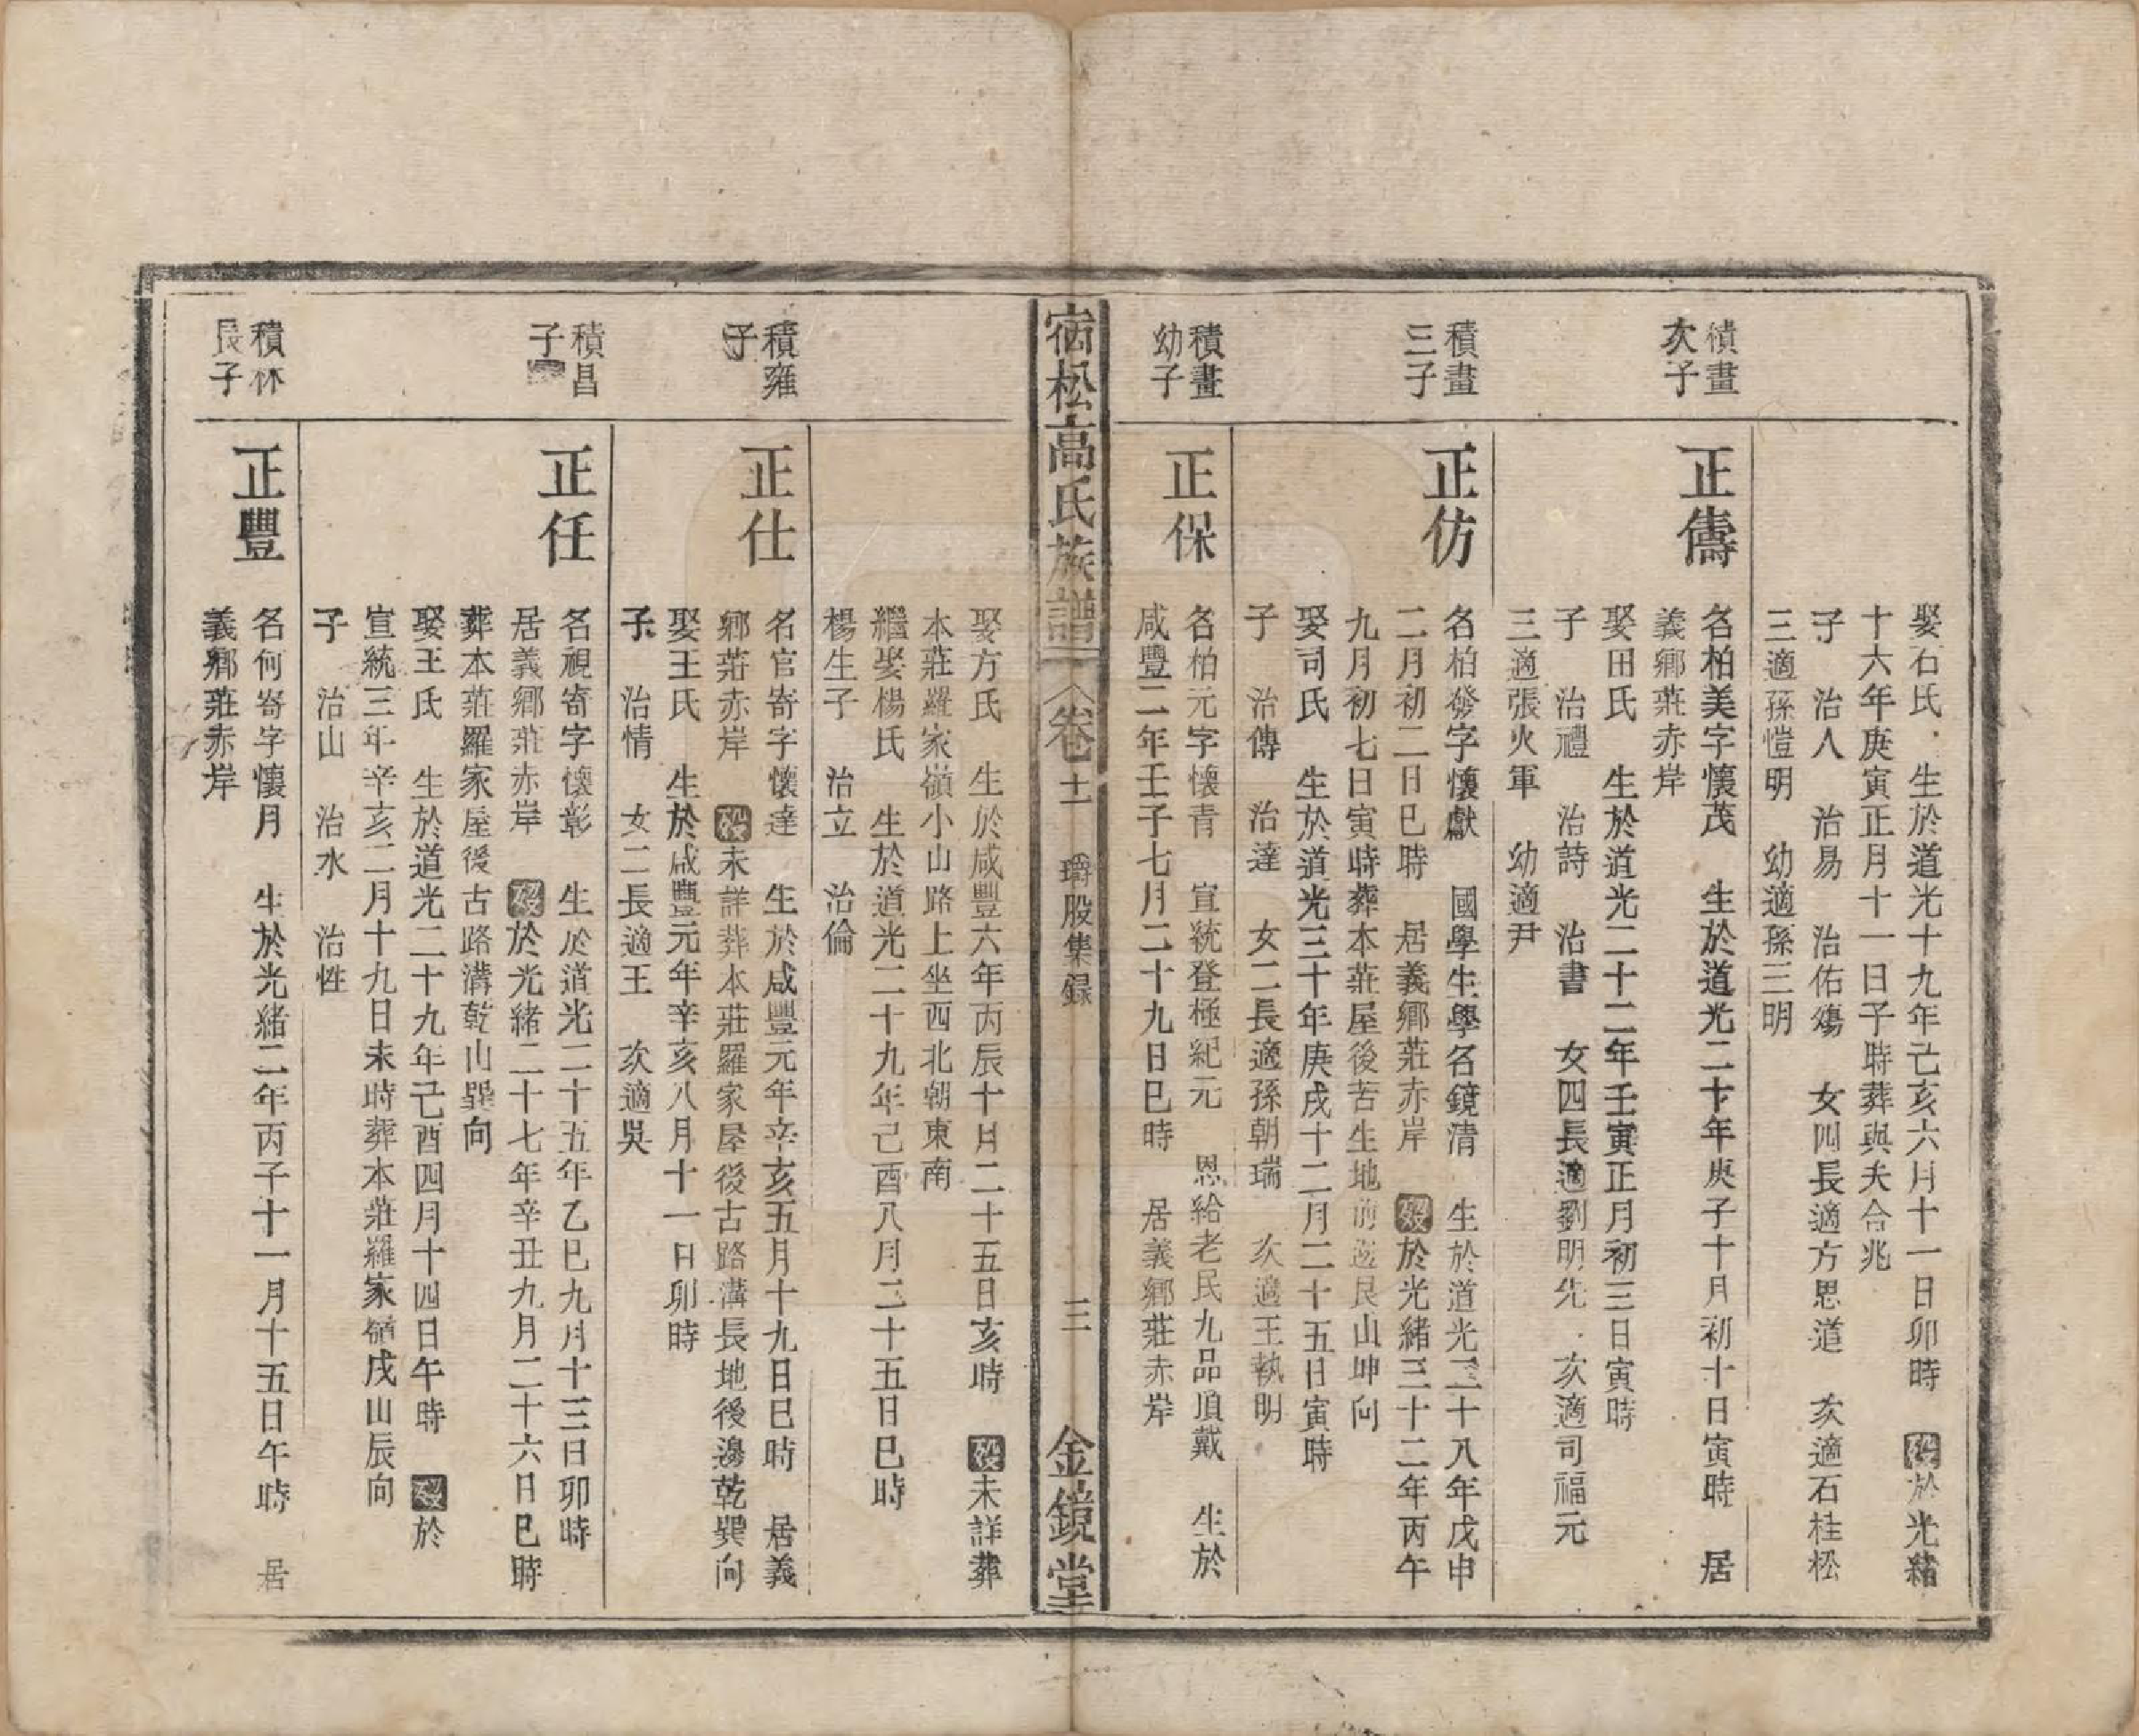 娶石氏 生於道光十九年己亥六月十一日卯時 歿於光緒
十六年庚寅正月十一日子時葬與夫合兆
子 治人 治易 治佑殤 女四長適方思道 次適石桂松
三適孫愷明 幼適孫三明
積畫
次子
正儔
名柏美字懷茂 生於道光二十年庚子十月初十日寅時 居
義鄉莊赤岸
娶田氏 生於道光二十二年壬寅正月初三日寅時
子 治禮 治詩 治書 女四長適劉明先 次適司福元
三適張火軍 幼適尹
積畫
三子
正仿
名柏發字懷獻 國學生學名鏡清 生於道光二十八年戊申
二月初二日巳時 居義鄉莊赤岸 歿於光緒三十二年丙午
九月初七日寅時葬本莊屋後苦生地前邊艮山坤向
娶司氏 生於道光三十年庚戌十二月二十五日寅時
子 治傳 治達 女二長適孫朝瑞 次適王執明
積畫
幼子
正保
名柏元字懷青 宣統登極紀元 恩給老民九品頂戴 生於
咸豐二年壬子七月二十九日巳時 居義鄉莊赤岸
宿松高氏族譜 卷十一 瑨股集錄 三 金鏡堂
娶方氏 生於咸豐六年丙辰十月二十五日亥時 歿未詳葬
本莊羅家嶺小山路上坐西北朝東南
繼娶楊氏 生於道光二十九年己酉八月二十五日巳時
楊生子 治立 治倫
積雍
子
正仕
名官寄字懷達 生於咸豐元年辛亥五月十九日巳時 居義
鄉莊赤岸 歿未詳葬本莊羅家屋後古路溝長地後邊乾巽向
娶王氏 生於咸豐元年辛亥八月十一日卯時
子 治情 女二長適王 次適吳
積昌
子
正任
名視寄字懷彰 生於道光二十五年乙巳九月十三日卯時
居義鄉莊赤岸 歿於光緒二十七年辛丑九月二十六日巳時
葬本莊羅家屋後古路溝乾山巽向
娶王氏 生於道光二十九年己酉四月十四日午時 歿於
宣統三年辛亥二月十九日未時葬本莊羅家嶺戌山辰向
子 治山 治水 治性
積林
長子
正豐
名何寄字懷月 生於光緒二年丙子十一月十五日午時 居
義鄉莊赤岸